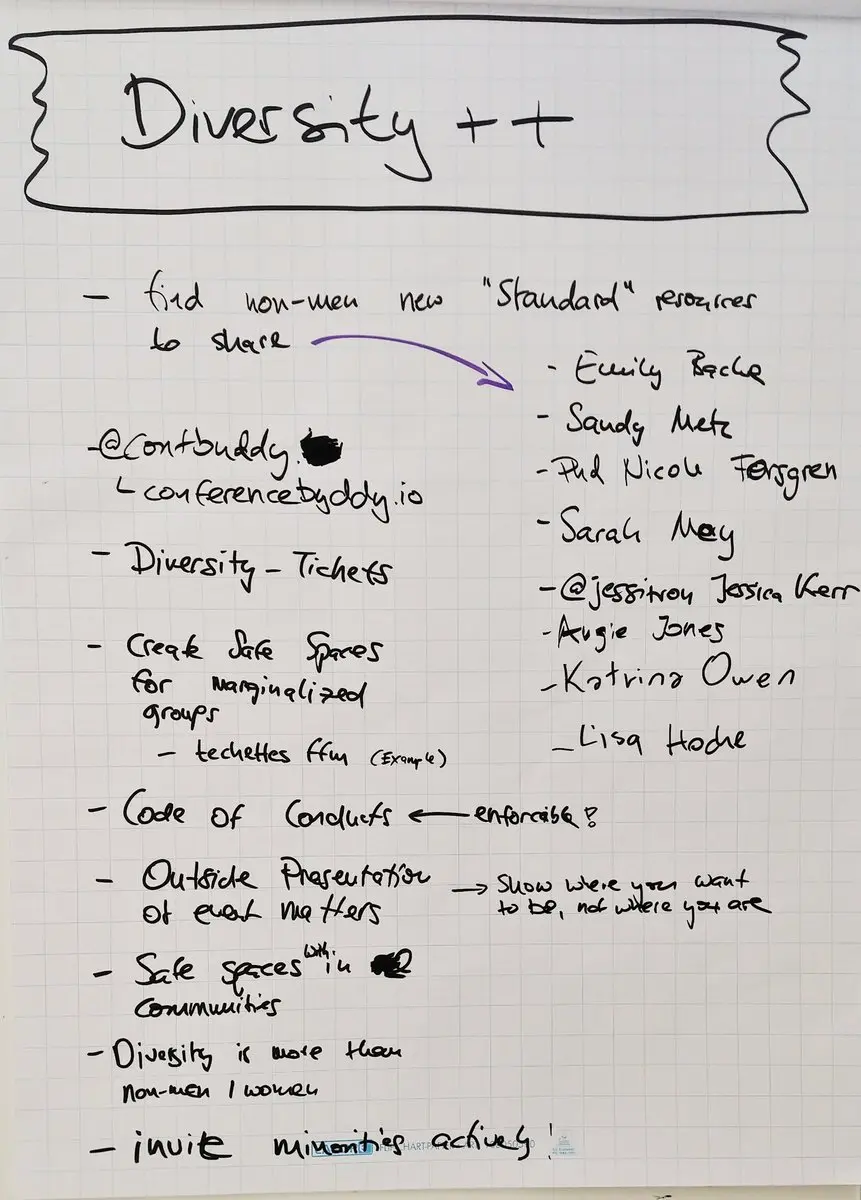 Diversity ++
- find non-men new "Standard" resources
to share
- Emily Bache
- Sandy Metz
- PhD Nicole Forsgren
- Sarah Mey
- @jessitron Jessica Kerr
- Angie Jones
- Katrina Owen
- Lisa Hoche
- @confbuddy.
conferencebyddy.io
- Diversity - Tickets
- Create Safe Spaces
for marginalized
groups
- techettes ffm (Example)
- Code of Conducts ← enforcible?
- Outside Presentation
of event matters
→ Show where you want
to be, not where you are
- Safe spaces within
communities
- Diversity is more than
non-men / women
- invite minorities actively!